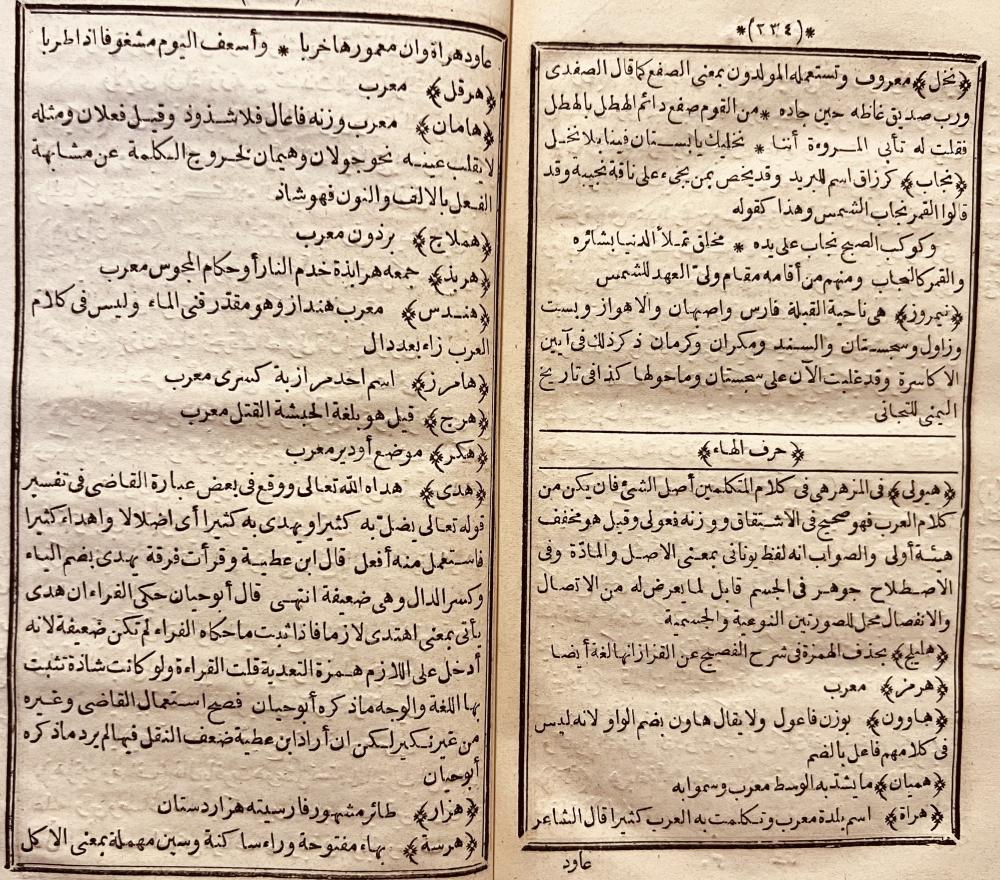 *(٢٣٤)*
﴿نخل﴾ معروف وتستعمله المولدون بمعنى الصفع كما قال الصفدى
ورب صديق غاظه حين جاده * من القوم صفع دائم الهطل بالهطل
فقلت له تأبى المروءة أننا * نخليك يابستان فينا بلا نخل
﴿نجاب﴾ كرزاق اسم للبريد وقد يخص بمن يجىء على ناقة نجيبة وقد
قالوا القمر نجاب الشمس وهذا كقوله
وكوكب الصبح نجاب على يده * مخلق تملأ الدنيا بشائره
والقمر كالنجاب ومنهم من أقامه مقام ولىّ العهد للشمس
﴿نيمروز﴾ هى ناحية القبلة فارس واصبهان والاهواز وبست
وزاول وسجستان والسند ومكران وكرمان ذكر ذلك فى آيين
الاكاسرة وقد غلبت الآن على سجستان وما حولها كذا فى تاريخ
اليمنى للنجاتى
﴿حرف الهاء﴾
﴿هيولى﴾ فى المزهر هى فى كلام المتكلمين أصل الشئ فان يكن من
كلام العرب فهو صحيح فى الاشتقاق ووزنه فعولى وقيل هو مخفف
هيئة أولى والصواب انه لفظ يونانى بمعنى الاصل والمادّة وفى
الاصطلاح جوهر فى الجسم قابل لما يعرض له من الاتصال
والانفصال محل للصورتين النوعية والجسمية
﴿هليلج﴾ بحذف الهمزة فى شرح الفصيح عن القزاز انها لغة أيضا
﴿هرمز﴾ معرب
﴿هاوون﴾ بوزن فاعول ولا يقال هاون بضم الواو لانه ليس
فى كلامهم فاعل بالضم
﴿هميان﴾ ما يشتد به الوسط معرب وسموا به
﴿هراة﴾ اسم بلدة معرب وتكلمت به العرب كثيرا قال الشاعر
عاود
عاود هراة وان معمورها خربا * وأسعف اليوم مشغوفا اذا طربا
﴿هرقل﴾ معرب
﴿هامان﴾ معرب وزنه فاعال فلا شذوذ وقيل فعلان ومثله
لا يقلب عينه نحو جولان وهيمان لخروج الكلمة عن مشابهة
الفعل بالالف والنون فهو شاذ
﴿هملاج﴾ برذون معرب
﴿هربذ﴾ جمعه هرابذة خدم النار أو حكام المجوس معرب
﴿هندس﴾ معرب هنداز وهو مقدّر قنى الماء وليس فى كلام
العرب زاء بعد دال
﴿هامرز﴾ اسم احد مرازبة كسرى معرب
﴿هرج﴾ قيل هو بلغة الحبشة القتل معرب
﴿هكر﴾ موضع أو دير معرب
﴿هدى﴾ هداه الله تعالى ووقع فى بعض عبارة القاضى فى تفسير
قوله تعالى يضلّ به كثيرا ويهدى به كثيرا أى اضلالا واهداء كثيرا
فاستعمل منه أفعل قال ابن عطية وقرأت فرقة يهدى بضم الياء
وكسر الدال وهى ضعيفة انتهى قال أبو حيان حكى الفراء ان هدى
يأتى بمعنى اهتدى لازما فاذا ثبت ما حكاه الفراء لم تكن ضعيفة لانه
أدخل على اللازم همزة التعدية قلت القراءة ولو كانت شاذة تثبت
بها اللغة والوجه ما ذكره أبو حيان فصح استعمال القاضى وغيره
من غير نكير لكن ان أراد ابن عطية ضعف النقل فيها لم يرد ما ذكره
أبو حيان
﴿هزار﴾ طائر مشهور فارسيته هزاردستان
﴿هرسة﴾ بهاء مفتوحة وراء ساكنة وسين مهملة بمعنى الاكل